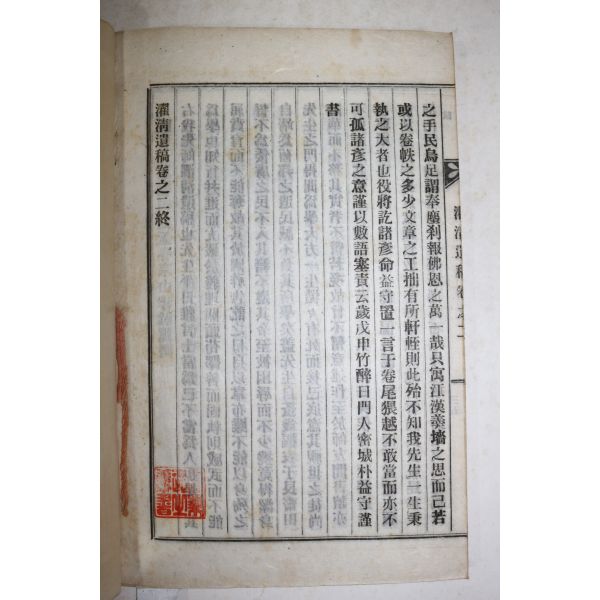 之手民烏足謂奉塵刹報佛恩之萬一哉只寓江漢羹墻之思而已若
或以卷帙之多少文章之工拙有所軒輊則此殆不知我先生一生秉
執之大者也役將訖諸彦命益守置一言于卷尾猥越不敢當而亦不
可孤諸彦之意謹以數語塞責云歲戊申竹醉日門人密城朴益守謹
書
濯淸遺稿卷之二終
濯淸遺稿卷之二